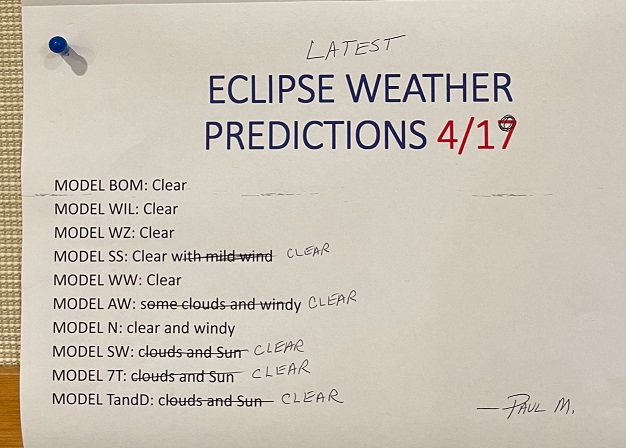 LATEST
ECLIPSE WEATHER
PREDICTIONS 4/19
MODEL BOM: Clear
MODEL WIL: Clear
MODEL WZ: Clear
MODEL SS: Clear with mild wind CLEAR
MODEL WW: Clear
MODEL AW: some clouds and windy CLEAR
MODEL N: clear and windy
MODEL SW: clouds and Sun CLEAR
MODEL 7T: clouds and Sun CLEAR
MODEL TandD: clouds and Sun CLEAR
— PAUL M.